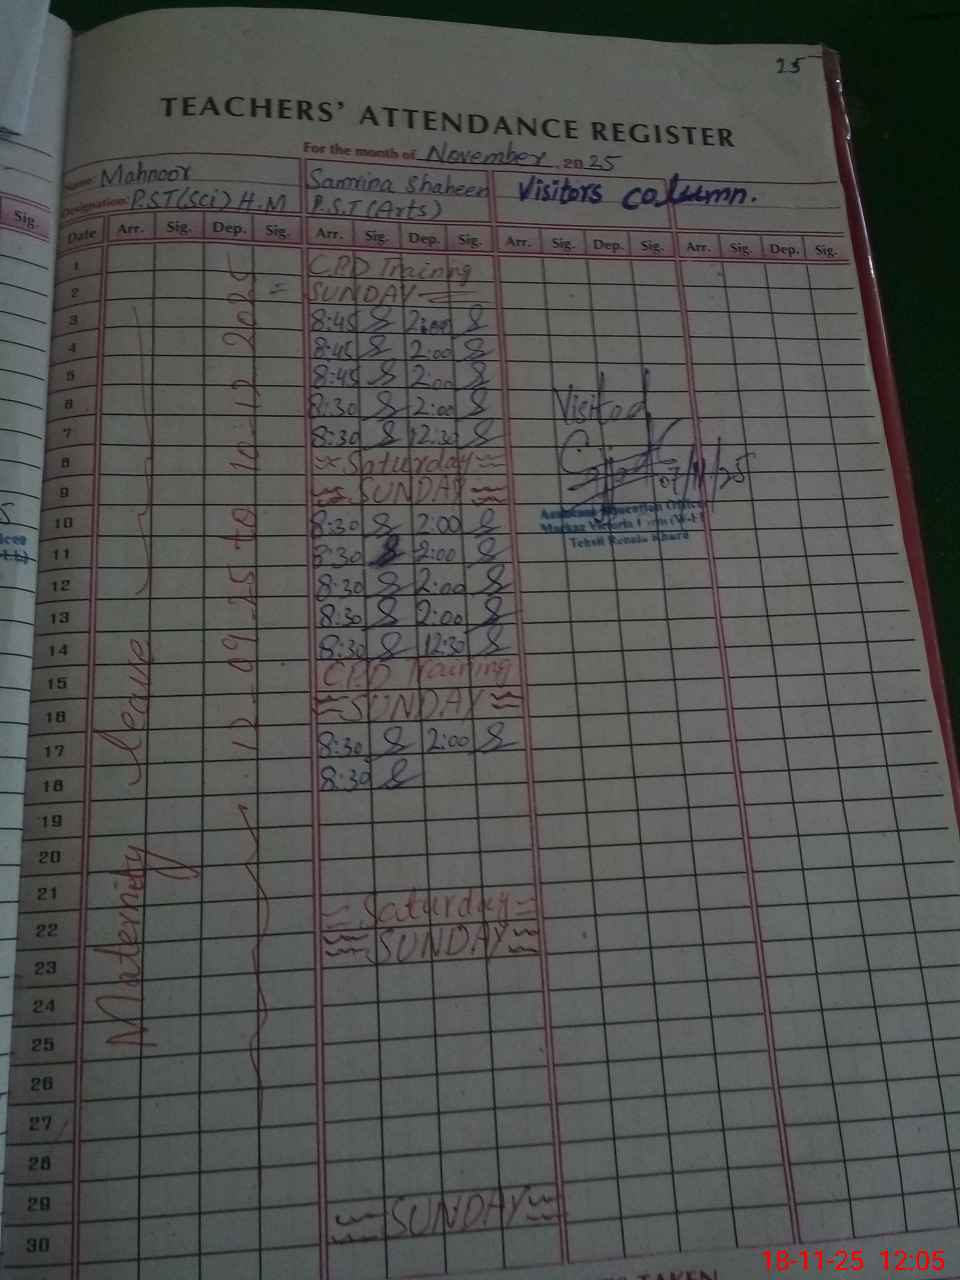 25
TEACHERS' ATTENDANCE REGISTER
For the month of November 2025
Name: Mahnoor Samrina Shaheen Visitors column.
Designation: P.ST(Sci) H.M P.S.T (Arts)
Sig.
Date Arr. Sig. Dep. Sig. Arr. Sig. Dep. Sig. Arr. Sig. Dep. Sig. Arr. Sig. Dep. Sig.
1 CPD Training
2 = SUNDAY
3 8:45 2:00
4 8:45 2:00
5 8:45 2:00
6 8:30 2:00
7 8:30 12:30
8 Saturday
9 SUNDAY
10 8:30 2:00
11 8:30 2:00
12 8:30 2:00
13 8:30 2:00
14 8:30 12:30
15 CPD Training
16 SUNDAY
17 8:30 2:00
18 8:30
19
20
21
22 Saturday
23 SUNDAY
24
25
26
27
28
29
30 SUNDAY
Maternity leave
12-09-25 to 10-12-2025
Visited
07/11/25
Assistant Education Officer
Tehsil Renala Khurd
TAKEN
18-11-25 12:05